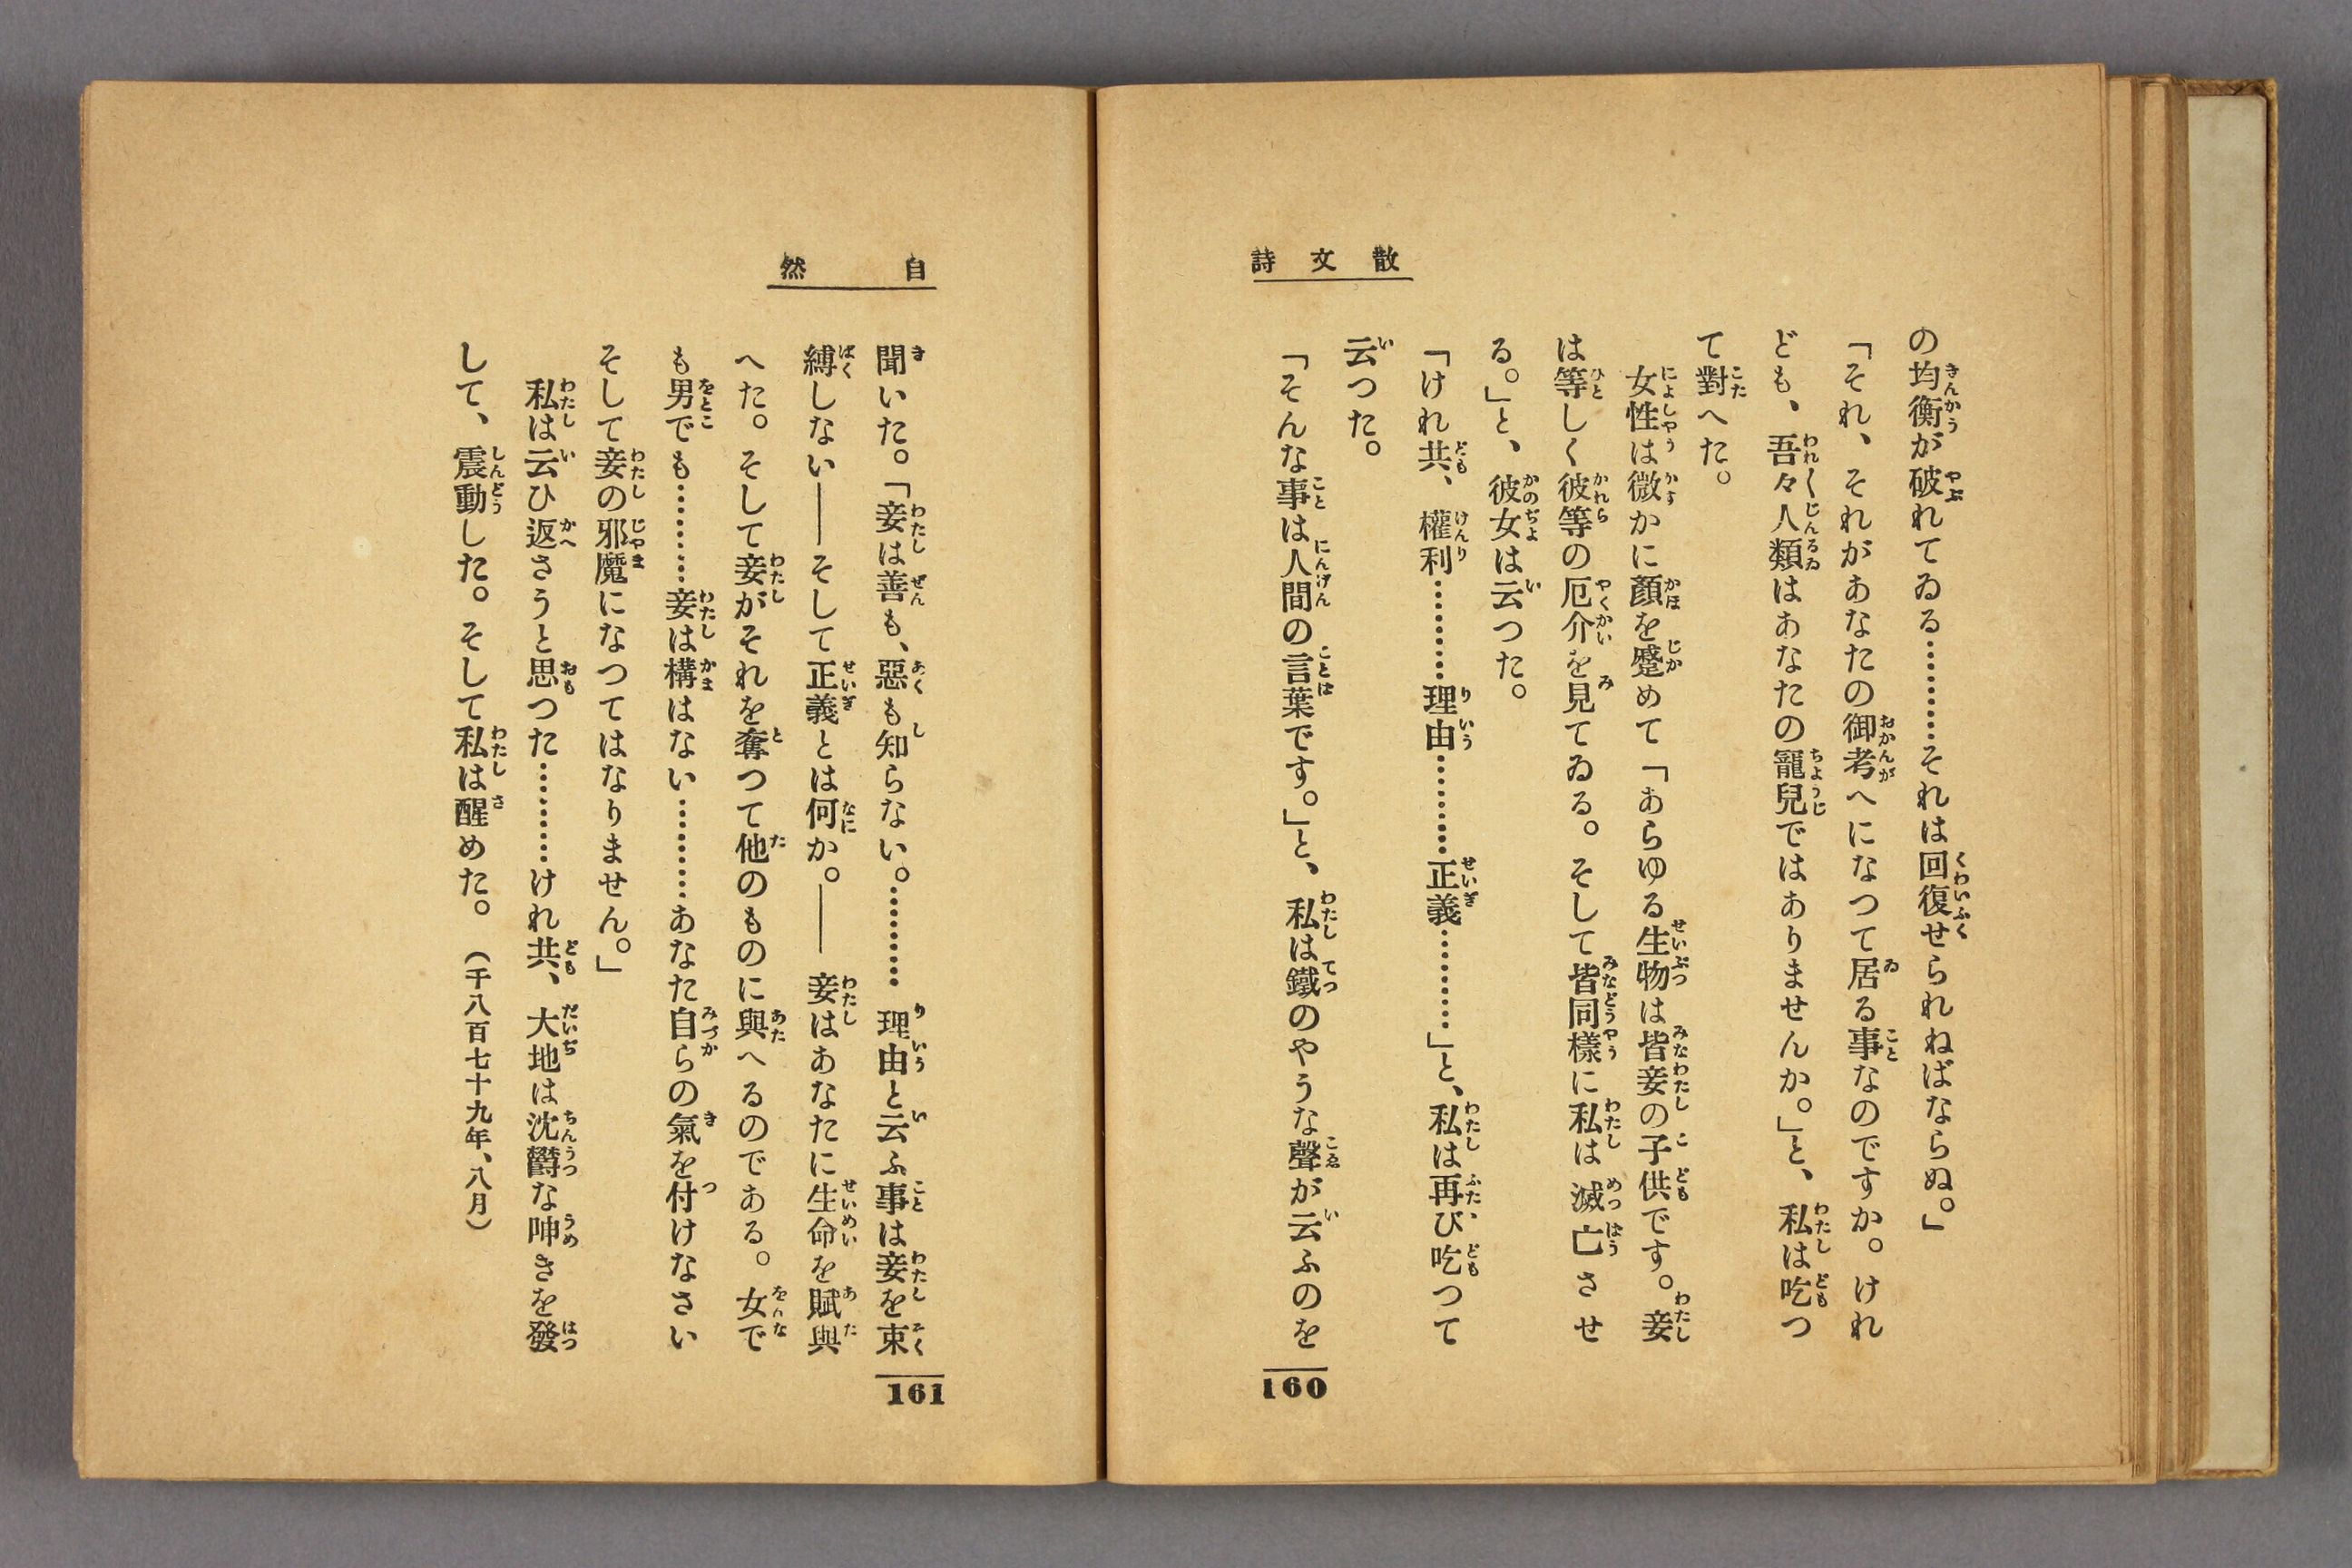 散文詩
の均衡が破れてゐる…………それは回復せられねばならぬ。」
「それ、それがあなたの御考へになつて居る事なのですか。けれ
ども、吾々人類はあなたの寵兒ではありませんか。」と、私は吃つ
て對へた。
女性は微かに顏を蹙めて「あらゆる生物は皆妾の子供です。妾
は等しく彼等の厄介を見てゐる。そして皆同樣に私は滅亡させ
る。」と、彼女は云つた。
「けれ共、權利…………理由…………正義…………」と、私は再び吃つて
云つた。
「そんな事は人間の言葉です。」と、私は鐵のやうな聲が云ふのを
160
自然
聞いた。「妾は善も、惡も知らない。…………理由と云ふ事は妾を束
縛しない――そして正義とは何か。――妾はあなたに生命を賦與
へた。そして妾がそれを奪つて他のものに與へるのである。女で
も男でも…………妾は構はない…………あなた自らの氣を付けなさい
そして妾の邪魔になつてはなりません。」
私は云ひ返さうと思つた…………けれ共、大地は沈欝な呻きを發
して、震動した。そして私は醒めた。（千八百七十九年、八月）
161